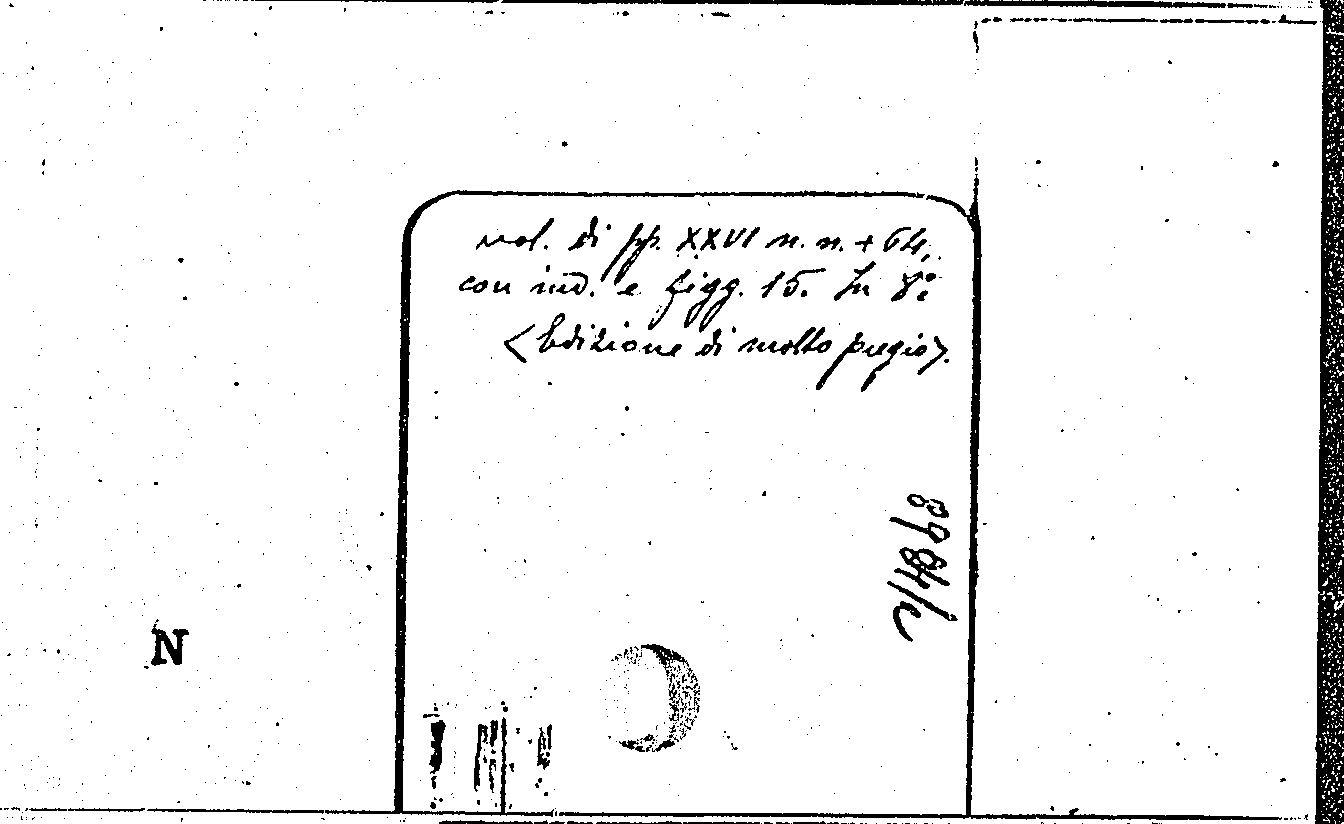 vol. di pp. XXVI n. n. + 64,
con ind. e figg. 15. In 8°.
<Edizione di molto pregio>.
N